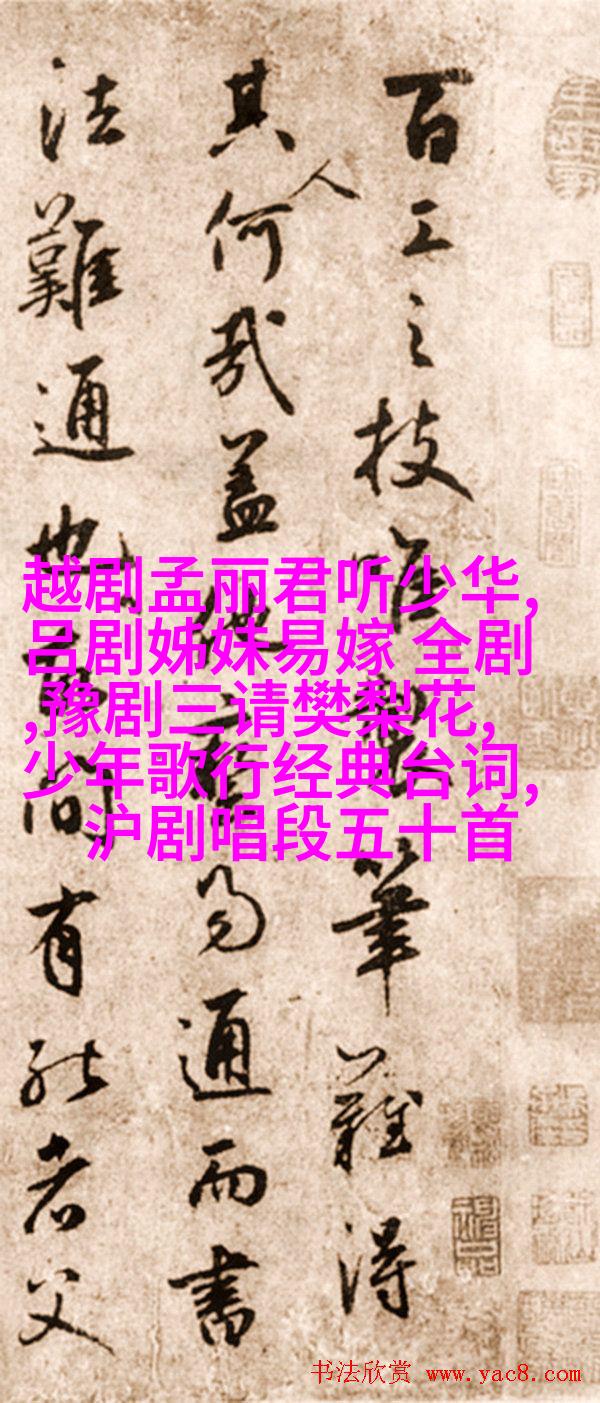 百工之技唯筆難得
其人何哉蓋易通而書
法難通也間有能者父
越剧孟丽君听少华,
吕剧姊妹易嫁 全剧
,豫剧三请樊梨花,
少年歌行经典台词,
沪剧唱段五十首
书法欣赏 www.yac8.com